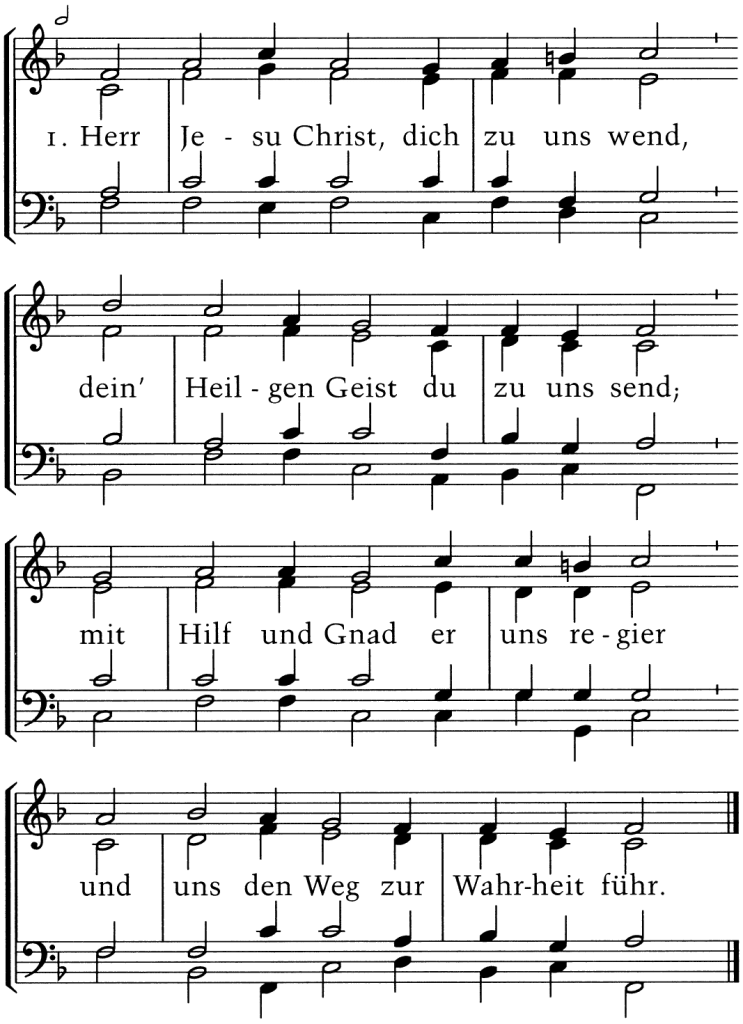 1. Herr Je - su Christ, dich zu uns wend,
dein' Heil - gen Geist du zu uns send;
mit Hilf und Gnad er uns re - gier
und uns den Weg zur Wahr-heit führ.